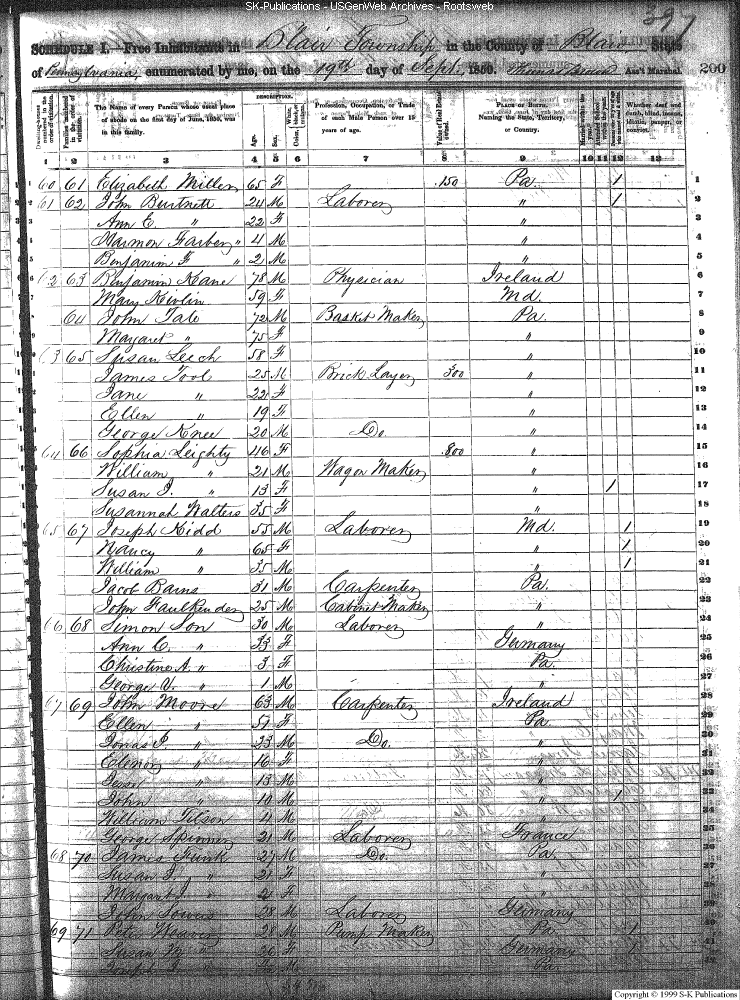 SK-Publications - USGenWeb Archives - Rootsweb
397
SCHEDULE I.—Free Inhabitants in Blair Township in the County of Blair State
of Pennsylvania enumerated by me, on the 19th day of Sept. 1850. Ass't Marshal. 200
DESCRIPTION.
The Name of every Person whose usual place of abode on the first day of June, 1850, was in this family.
Age.
Sex.
Profession, Occupation, or Trade of each Male Person over 15 years of age.
Value of Real Estate owned.
PLACE OF BIRTH. Naming the State, Territory, or Country.
Whether deaf and dumb, blind, insane, idiotic, pauper, or convict.
1 2 3 4 5 6 7 8 9 10 11 12 13
1 60 61 Elizabeth Miller 65 F 150 Pa. 1 1
2 61 62 John Burtnett 24 M Laborer " 1 2
3 Ann E. " 22 F " 3
4 Harmon Farber " 4 M " 4
5 Benjamin F " 2 M " 5
6 62 63 Benjamin Kane 78 M Physician Ireland 6
7 Mary 59 F Md. 7
8 64 John Tate 72 M Basket Maker Pa. 8
9 Margaret " 75 F " 9
10 63 65 Susan Leech 58 F " 10
James Tool 25 M Brick Layer 300 " 11
Jane " 22 F " 12
Ellen " 19 F " 13
George Knee 20 M Do. " 14
64 66 Sophia Leighty 46 F 800 " 15
William " 21 M Wagon Maker " 16
Susan J. " 13 F " 1 17
Susannah Walters 35 F " 18
65 67 Joseph Kidd 55 M Laborer Md. 1 19
Nancy " 65 F " 1 20
William " 35 M " 1 21
Jacob Barns 31 M Carpenter Pa. 22
John Faulkender 25 M Cabinet Maker " 23
66 68 Simon Son 30 M Laborer " 24
Ann C. " 33 F Germany 25
Christine A. " 3 F Pa. 26
George V. " 1 M "
67 69 John Moore 63 M Carpenter Ireland 28
Ellen " 51 F Pa. 29
Jonas F. " 23 M Do. " 30
Elenor " 16 F " 31
Jesse " 13 M " 32
John " 10 M " 1
William Tilson 4 M "
George Spinner 21 M Laborer France
68 70 James Funk 27 M Do. Pa.
Susan J. " 21 F "
Margaret J. " 2 F "
John 28 M Laborer Germany
69 71 Peter Weaver 28 M Pump Maker Pa. 1
Susan M " 26 F Germany 1
Joseph " M Pa.
Copyright © 1999 S-K Publications